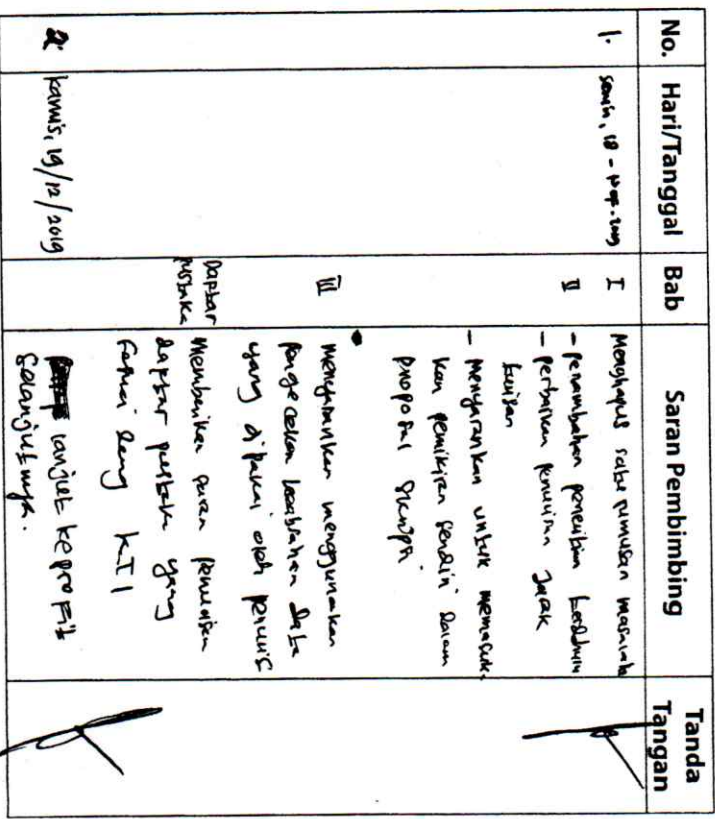 No. Hari/Tanggal Bab Saran Pembimbing Tanda Tangan
1. Senin, 18 - Nop - 2019 I Menghapus satu rumusan masalah
II - penambahan penelitian terdahulu
- perbaikan penulisan Jarak
tulisan
- menyarankan untuk memasuk-
kan pemikiran sendiri dalam
proposal skripsi
III menyarankan menggunakan
pengecekan keabsahan data
yang dipakai oleh penulis
Daptar pustaka memberikan saran penulisan
daptar pustaka yang
sesuai dengan KTI
2. Kamis, 19/12/2019 lanjut ke profil
selanjutnya.